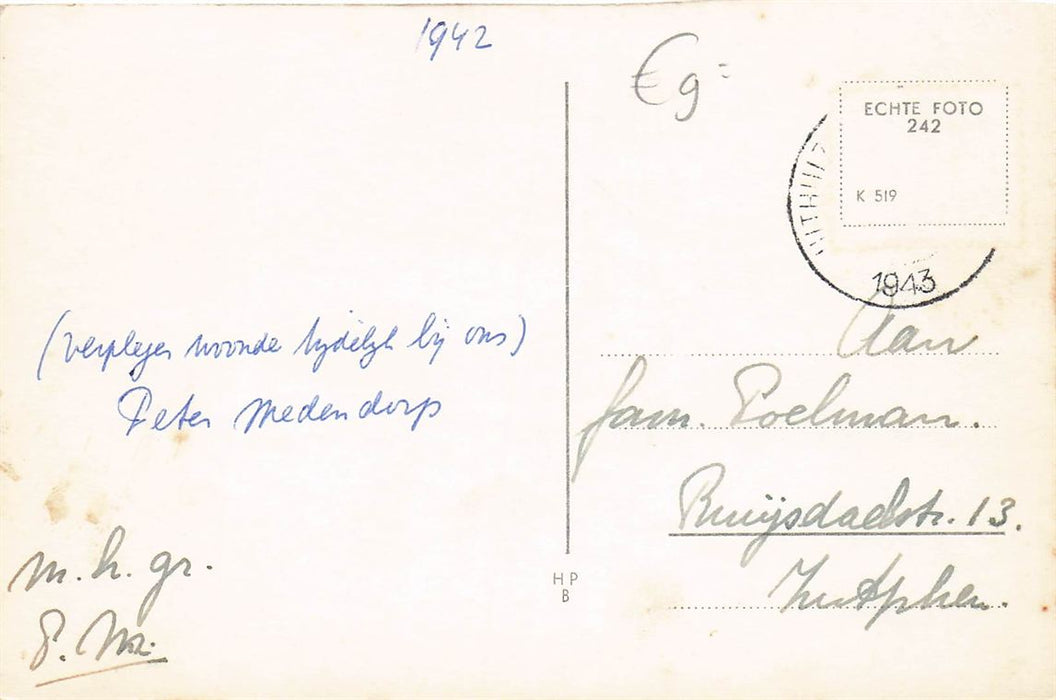 1942
€ 9=
ECHTE FOTO
242
K 519
1943
(verpleger woonde tijdelijk bij ons)
Peter Medendorp
Aan
fam. Poelman.
Ruijsdaelstr. 13.
Zutphen.
m. h. gr.
HP
B